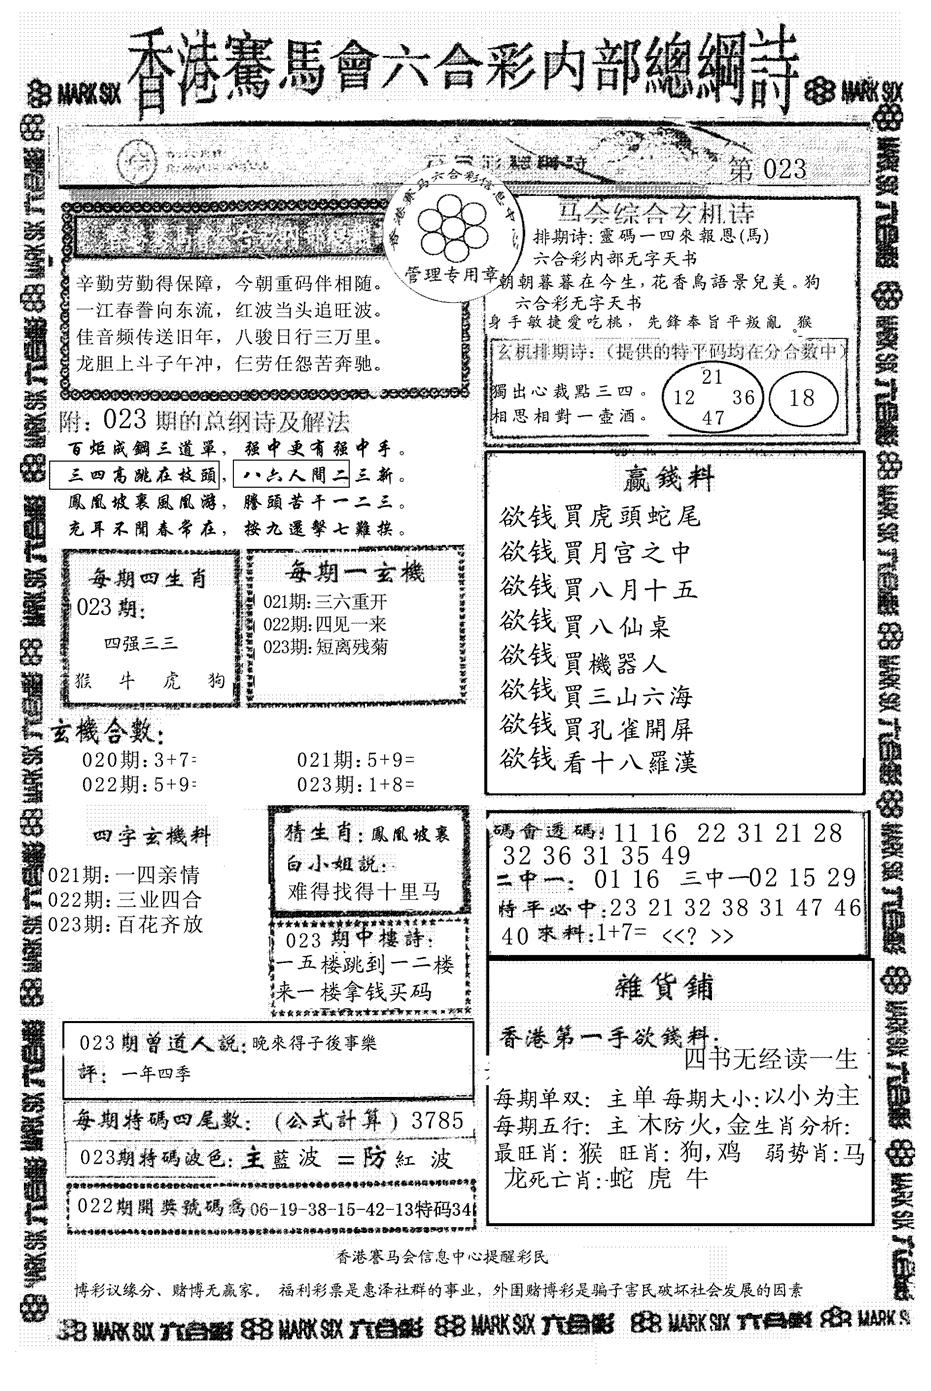 香港賽馬會六合彩内部總綱詩
MARK SIX
MARK SIX
第 023
香港赛马六合彩信息中心
管理专用章
辛勤劳勤得保障，今朝重码伴相随。
一江春誊向东流，红波当头追旺波。
佳音频传送旧年，八骏日行三万里。
龙胆上斗子午冲，仨劳任怨苦奔驰。
马会综合玄机诗
排期诗: 靈碼一四來報恩(馬)
六合彩内部无字天书
朝朝暮暮在今生,花香鳥語景兒美。狗
六合彩无字天书
身手敏捷愛吃桃，先鋒奉旨平叛亂 。猴
玄机排期诗:（提供的特平码均在分合数中）
獨出心裁點三四。
相思相對一壺酒。
21
12 36
47
18
附: 023 期的总纲诗及解法
百炬成鋼三道單，强中更有强中手。
三四高跳在枝頭，八六人間二三新。
鳳凰坡裏鳳凰游，騰頭苦干一二三。
充耳不聞春常在，按九還擊七難挨。
每期四生肖
023期:
四强三三
猴 牛 虎 狗
每期一玄機
021期:三六重开
022期:四见一来
023期:短离残菊
赢錢料
欲钱買虎頭蛇尾
欲钱買月宫之中
欲钱買八月十五
欲钱買八仙桌
欲钱買機器人
欲钱買三山六海
欲钱買孔雀開屏
欲钱看十八羅漢
玄機合數:
020期:3+7= 021期:5+9=
022期:5+9= 023期:1+8=
四字玄機料
021期:一四亲情
022期:三业四合
023期:百花齐放
猜生肖:鳳凰坡裏
白小姐説:
难得找得十里马
023 期中樓詩:
一五楼跳到一二楼
来一楼拿钱买码
碼會透碼: 11 16 22 31 21 28
32 36 31 35 49
二中一: 01 16 三中一02 15 29
特平必中:23 21 32 38 31 47 46
40 來料:1+7= <<? >>
雜貨鋪
香港第一手欲錢料:
四书无经读一生
每期单双: 主单 每期大小:以小为主
每期五行: 主 木防火,金生肖分析:
最旺肖: 猴 旺肖: 狗,鸡 弱势肖:马
龙死亡肖:蛇 虎 牛
023期曾道人説:晚來得子後事樂
評: 一年四季
每期特碼四尾數:（公式計算）3785
023期特碼波色:主藍波=防紅波
022期開獎號碼爲06-19-38-15-42-13特码34
香港賽马会信息中心提醒彩民
博彩议缘分、赌博无赢家。 福利彩票是惠泽社群的事业，外围赌博彩是骗子害民破坏社会发展的因素
MARK SIX 六合彩 MARK SIX 六合彩 MARK SIX 六合彩 MARK SIX 六合彩 MARK SIX